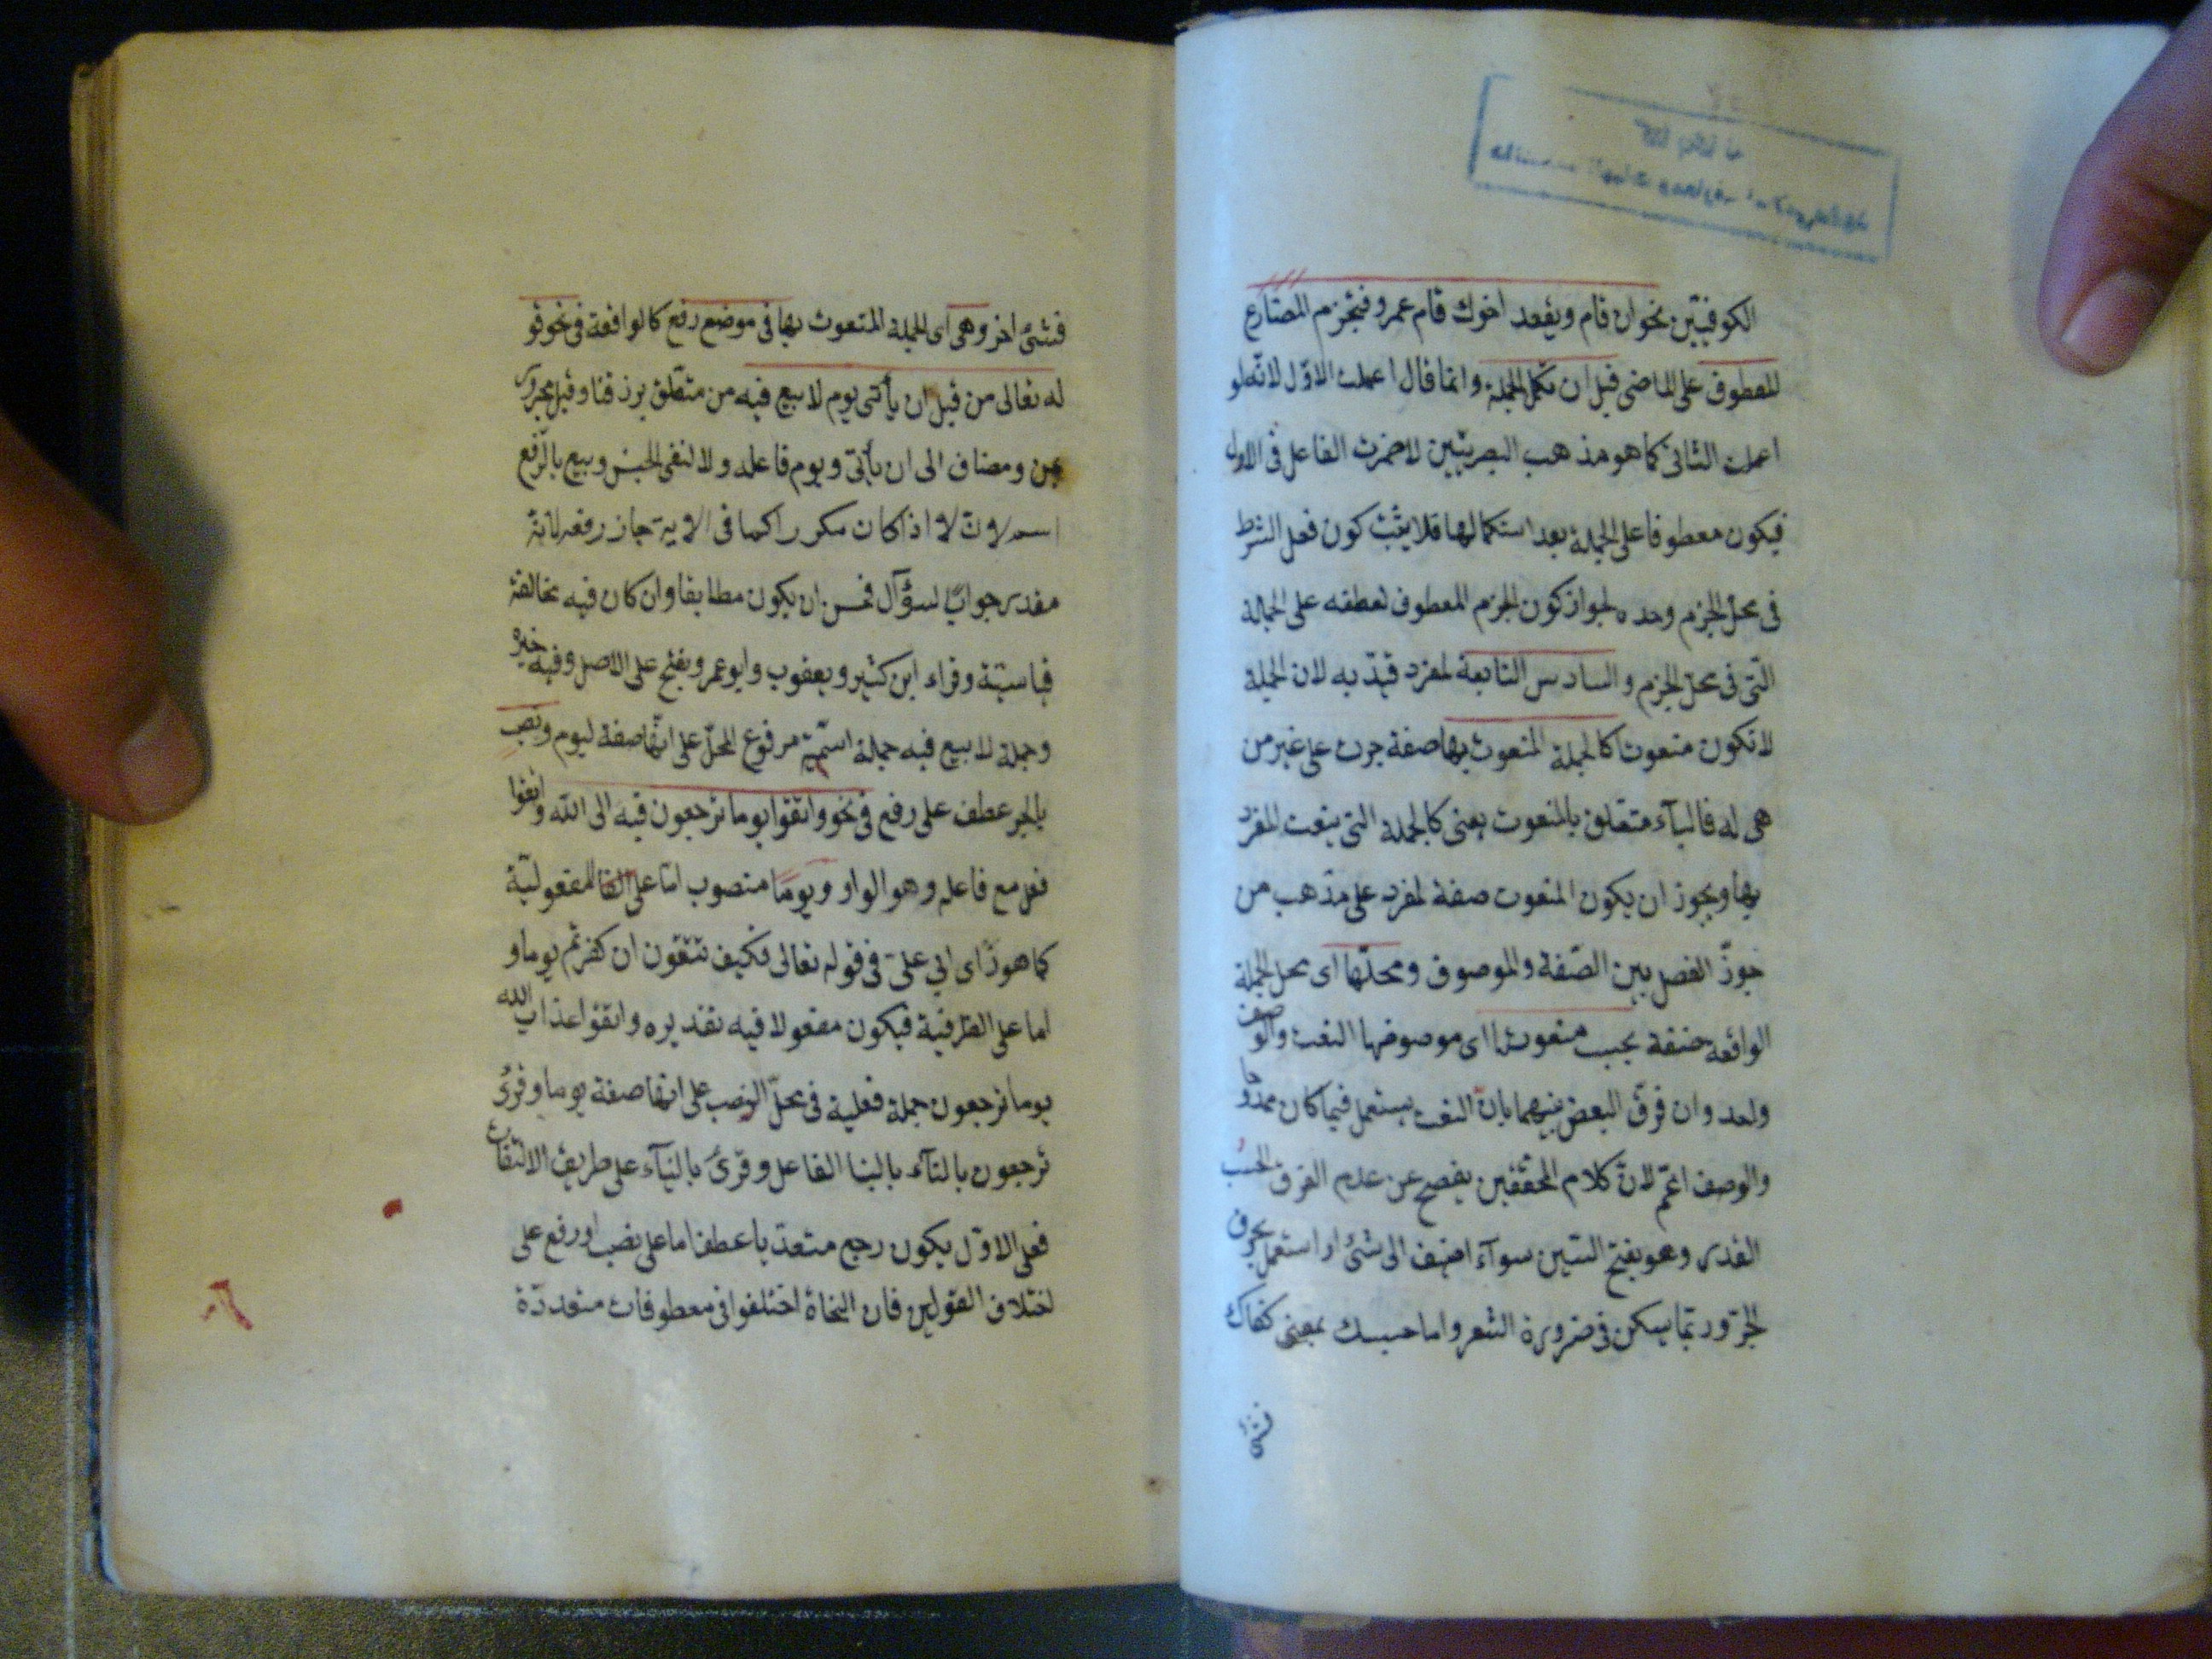 الكوفيّين نحو ان قام ويقعد اخوك قام عمرو فتجزم المضارع
المعطوف على الماضى قبل ان تكمل الجملة وانما قال اعملت الاوّل لانّه لو
اعملت الثانى كما هو مذهب البصريّين لاضمرت الفاعل فى الاول
فيكون معطوفا على الجملة بعد استكمالها فلا يثبت كون فعل الشرط
فى محلّ الجزم وحده لجواز كون الجزم المعطوف لعطفه على الجملة
التّى فى محلّ الجزم والسادس التابعة لمفرد قيّد به لان الجملة
لا تكون منعوتا كالجملة المنعوت بها صفة جرت على غير من
هى له فالباء متعلق بالمنعوت يعنى كالجملة التى ينعت المفرد
بها ويجوز ان يكون المنعوت صفة لمفرد على مذهب من
جوّز الفصل بين الصّفة والموصوف ومحلّها اى محل الجملة
الواقعة صفة بحسب منعوتها اى موصوفها النعت والوصف
واحد وان فرّق البعض بينهما بانّ النعت يستعمل فيما كان ممدوحا
والوصف اعمّ لانّ كلام المحققين يفصح عن عدم الفرق الحسب
القدر وهو بفتح السّين سوآء اضيف الى شئ او استعمل بحرف
الجرّ وربّما يسكن فى ضرورة الشعر واما حسبك بمعنى كفاك
فشئ
فشئ اخر وهى اى الجملة المنعوت بها فى موضع رفع كالواقعة فى نحو قو
له تعالى من قبل ان يأتى يوم لا بيع فيه من متعلق برزقنا وقبل مجرور
بمن ومضاف الى ان يأتى ويوم فاعله ولا لنفى الجنس وبيع بالرّفع
اسم لا وان لا اذا كان مكررا كما فى الاية جاز رفعه لانه
مقدر جوابا لسؤآل فحسن ان يكون مطابقا وان كان فيه مخالفة
قياسيّة وقراء ابن كثير ويعقوب وابو عمرو بفتح على الاصل وفيه خبره
وجملة لا بيع فيه جملة اسميّة مرفوع المحلّ على انّها صفة ليوم ونصب
بالجر عطف على رفع فى نحو واتّقوا يوما ترجعون فيه الى الله واتقوا
فعل مع فاعله وهو الواو ويوما منصوب امّا على المفعوليّة
كما هو رأى ابي علىّ فى قوله تعالى فكيف تتّقون ان كفرتم يوما و
اما على الظرفية فيكون مفعولا فيه تقديره واتقوا عذاب الله
يوما ترجعون جملة فعلية فى محلّ النصب على انها صفة يوما وقرئ
ترجعون بالتآء بالبنا الفاعل وقرئ بالياء على طريق الالتفات
فعلى الاوّل يكون رجع متعدّيا عطف اما على نصب او رفع على
اختلاف القولين فان النحاة اختلفوا فى معطوفات متعددة